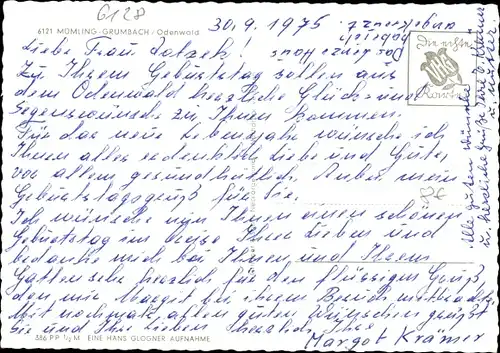 6128
6121 MÖMLING-GRUMBACH / Odenwald
30.9.1975
Liebe Frau
Zu Ihrem Geburtstag sollen aus
dem Odenwald herzliche Glück- und
Segenswünsche zu Ihnen kommen.
Für das neue Lebensjahr wünsche ich
Ihnen alles erdenklich Liebe und Gute,
vor allem gesundheitlich.
Geburtstagsgruß für Sie.
Ich wünsche nun Ihnen einen schönen
Geburtstag im Kreise Ihrer Lieben und
bedanke mich bei Ihnen und Ihrem
Gatten sehr herzlich für den flüssigen Gruß
den mir Margit bei ihrem Besuch
Mit nochmals allen guten Wünschen grüßt
Sie und Ihre Lieben herzlich Ihre
Margot Krämer
Alle guten Wünsche
u. herzliche Grüße
Die echte
386 PP ½ M EINE HANS GLOGNER AUFNAHME